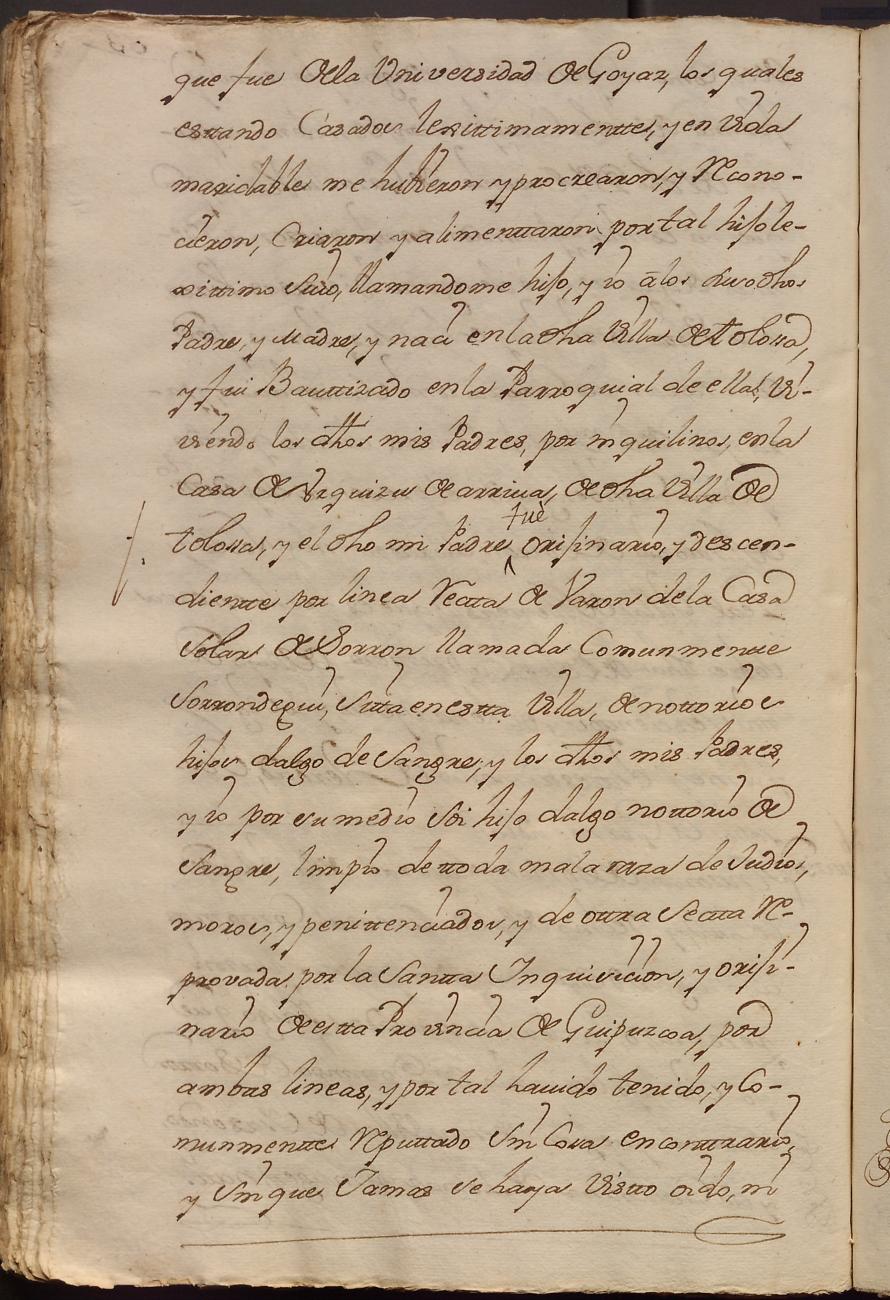 que fue dela Universidad de Goyaz, los quales
esttando Casados lexittimamentte, y en vida
maridable me hubieron y procrearon, y Recono-
cieron, Criaron y alimenttaron por tal hijo le-
xittimo suio, llamandome hijo, y io âlos suso dhos
Padre, y Madre, y nací en la dha Villa de tolossa,
y fui Bauttizado en la Parroquial de ella, vi-
viendo los dhos mis Padres, por inquilinos, en la
Casa de Urquizu de arriva, de dha Villa de
tolossa, y el dho mi Padre fuè orijinario, y descen-
diente por linea Rectta de Varon de la Casa
solar de Sorron llamada Comunmentte
Sorrondegui, sitta en estta Villa, de nottorios
hijos dalgo de sangre, y los dhos mis Padres,
y io por su medio soi hijo dalgo nottorio de
sangre, limpio de ttoda mala raza de Judios,
moros, y penittenciados, y de ottra Sectta Re-
provada por la Santta Inquisicion, y oriji-
nario de estta Provincia de Guipuzcoa, por
ambas lineas, y por tal havido tenido, y Co-
munmentte Reputtado sin Cosa en conttrario,
y sin que Jamas se haya vistto oido, ni